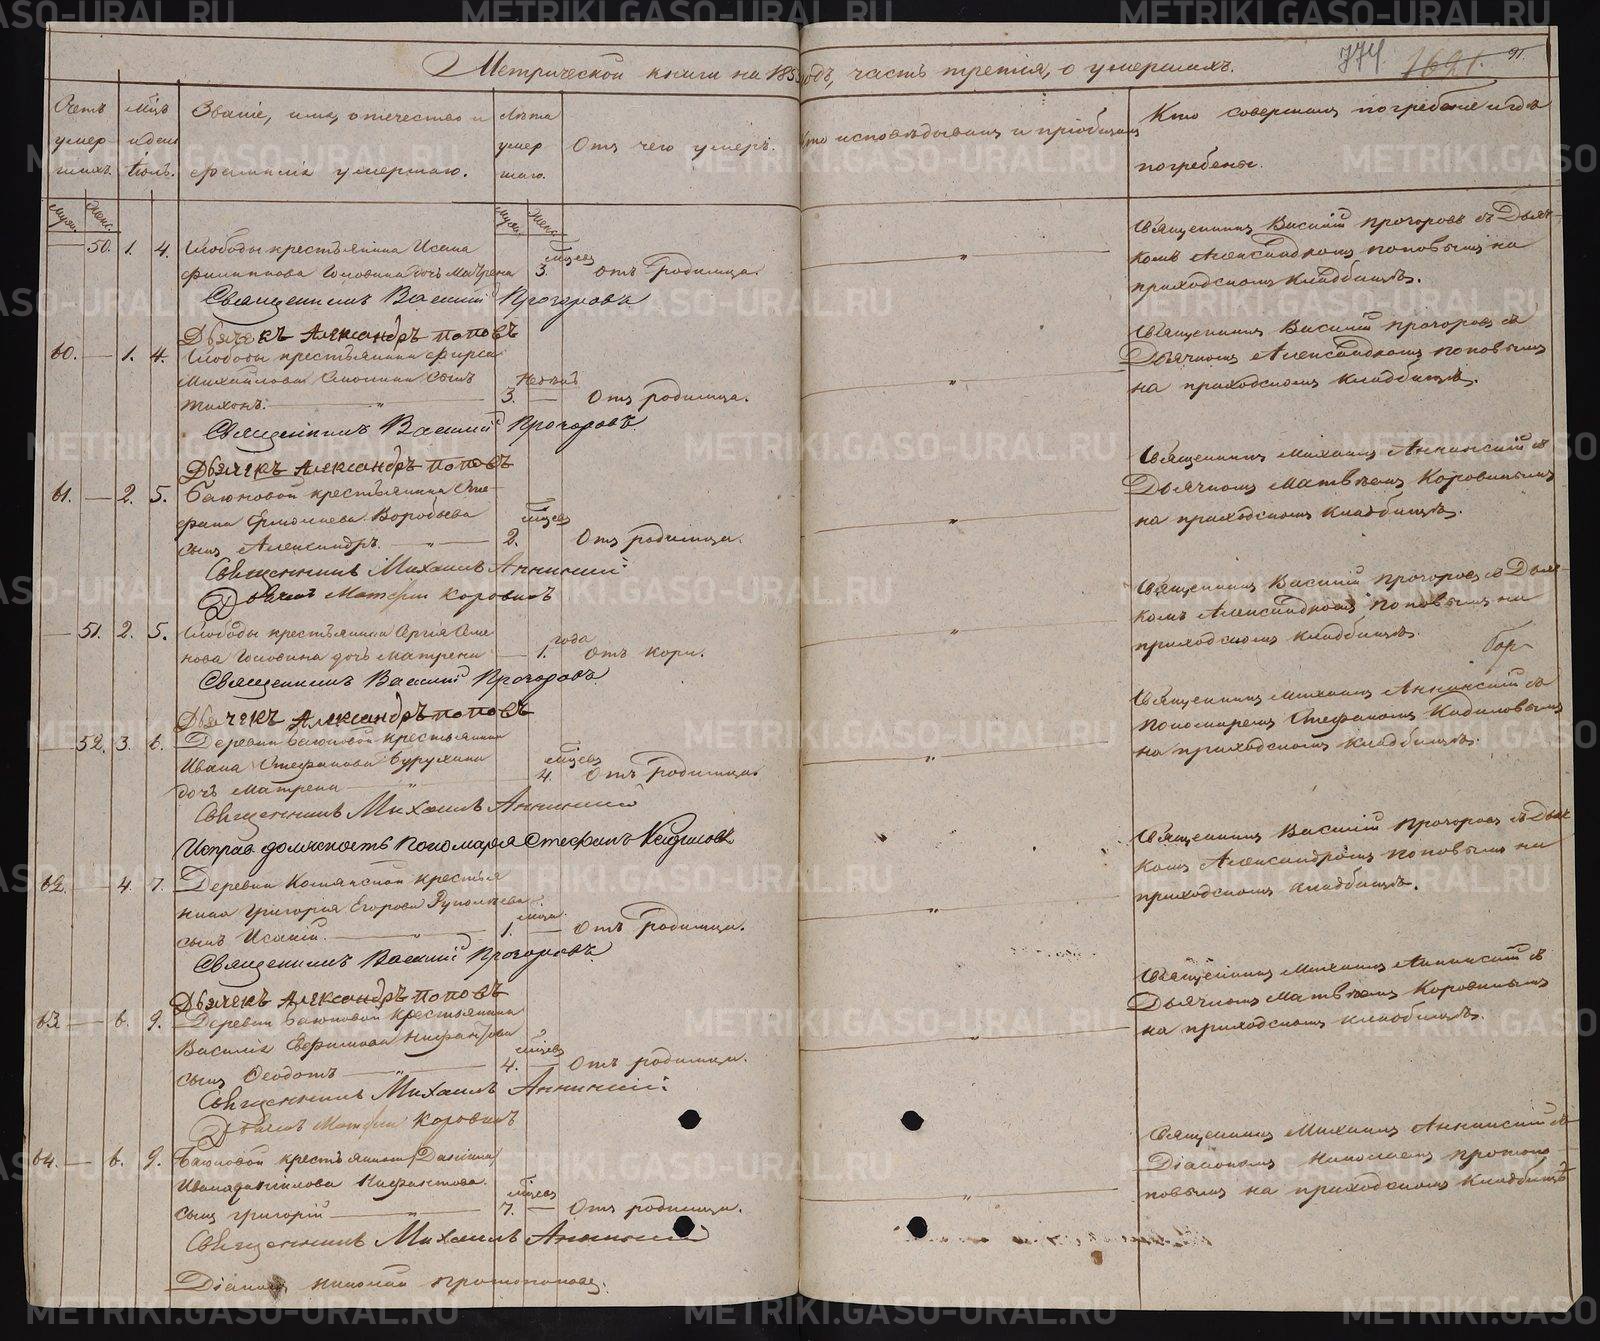 Метрической книги на 185 годъ, часть третія, о умершихъ.
774
1621.
91
Счетъ умер-шихъ.
Мѣсяцъ и день Іюль.
Званіе, имя, отечество и фамилія умершаго.
Лѣта умер шаго.
Отъ чего умеръ.
Кто исповѣдывалъ и пріобщалъ
Кто совершалъ погребеніе и гдѣ погребены.
Муж. Женс.
Муж. Женс.
50. 1. 4. Слободы крестьянина Исака
Филиппова Головина дочь Матрена 3. мѣсяц. отъ Родимца.
Священникъ Василій Прогоровъ съ Дьяч-
комъ Александромъ Поповымъ на
приходскомъ кладбищѣ.
Священникъ Василій Прогоровъ
Дьячекъ Александръ Поповъ
60. — 1. 4. Слободы крестьянина Фирса
Михайлова сынъ
Тихонъ. 3. Недѣль Отъ родимца.
Священникъ Василій Прогоровъ съ
Дьячкомъ Александромъ Поповымъ
на приходскомъ кладбищѣ.
Священникъ Василій Прогоровъ.
Дьячекъ Александръ Поповъ
61. — 2. 5. Баюновой крестьянина Сте-
фана Ермолаева Воробьева
сынъ Александръ. 2. мѣсяц. Отъ родимца.
Священникъ Михаилъ Аннинскій съ
Дьячкомъ Матвѣемъ Коровинымъ
на приходскомъ кладбищѣ.
Священникъ Михаилъ Аннинскій
Дьячекъ Матфей Коровинъ
51. 2. 5. Слободы крестьянина Сергія Семе
нова Головина дочь Матрена 1. года отъ кори.
Священникъ Василій Прогоровъ съ Дьяч-
комъ Александромъ Поповымъ на
приходскомъ кладбищѣ.
Священникъ Василій Прогоровъ.
Дьячекъ Александръ Поповъ
52. 3. 6. Деревни Баюновой крестьянина
Ивана Стефанова
дочь Матрена 4. мѣсяц. Отъ Родимца
Священникъ Михаилъ Аннинскій съ
Пономаремъ Стефаномъ Кадиловымъ
на приходскомъ кладбищѣ.
Священникъ Михаилъ Аннинскій
Исправ. должность Пономаря Стефанъ Кадиловъ
62. — 4. 7. Деревни крестья
нина Григорія Егорова
сынъ Исакій. 1. мѣсяца Отъ Родимца.
Священникъ Василій Прогоровъ съ Дьяч
комъ Александромъ Поповымъ на
приходскомъ кладбищѣ.
Священникъ Василій Прогоровъ
Дьячекъ Александръ Поповъ
63. — 6. 9. Деревни Баюновой крестьянина
Василія Евфимова
сынъ Ѳеодотъ 4. мѣсяц. Отъ родимца.
Священникъ Михаилъ Аннинскій съ
Дьячкомъ Матвѣемъ Коровинымъ
на приходскомъ кладбищѣ.
Священникъ Михаилъ Аннинскій
Дьячекъ Матфей Коровинъ
64. — 6. 9. Баюновой крестьянина
сынъ Григорій 7. мѣсяц. Отъ родимца.
Священникъ Михаилъ Аннинскій съ
Діакономъ Николаемъ Протопо
повымъ на приходскомъ кладбищѣ
Священникъ Михаилъ Аннинскій
Діаконъ Николай Протопоповъ.
METRIKI.GASO-URAL.RU